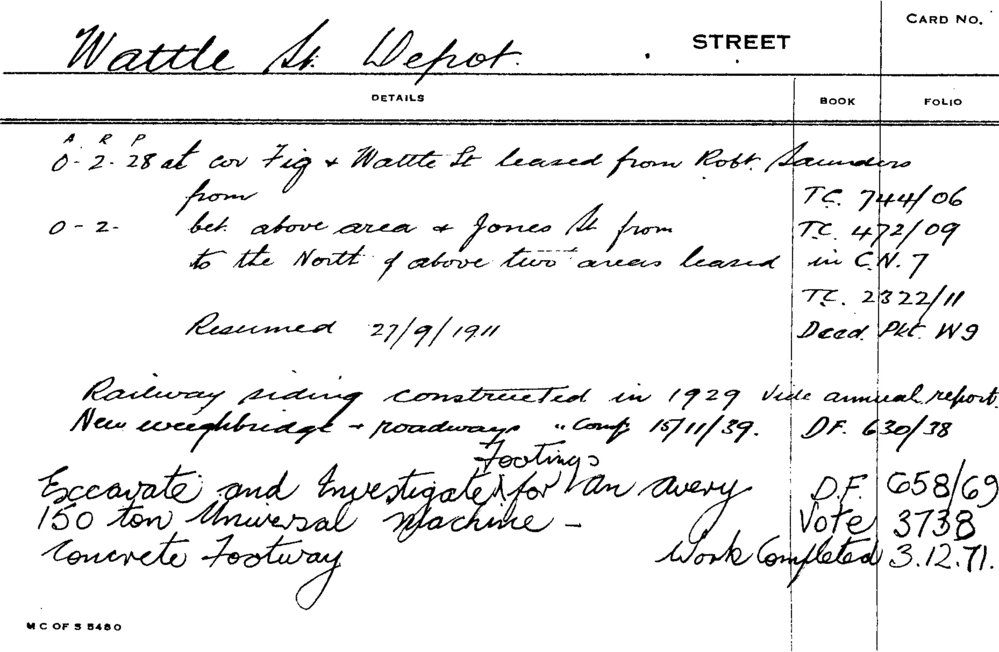 CARD NO.
Wattle St. Depot. STREET
DETAILS BOOK FOLIO
A. R. P.
0 - 2 - 28 at cor Fig & Wattle St leased from Robt. Saunders
from T.C. 744/06
0 - 2 - bet. above area & Jones St. from T.C. 472/09
to the North of above two areas leased in C.N. 7
T.C. 2322/11
Resumed 27/9/1911 Deed Pkt. W9
Railway siding constructed in 1929 vide annual report.
New weighbridge & roadways " Comp 15/11/39. D.F. 630/38
Footings
Excavate and Investigate for an avery D.F. 658/69
150 ton Universal Machine - Vote 3738
Concrete Footway Work Completed 3.12.71.
M C OF S 5480